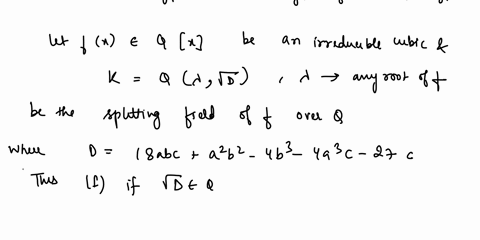 let f(x) ∈ Q [x] be an irreducible cubic &
K = Q (λ, √D) , λ → any root of f
be the splitting field of f over Q
where D = 18abc + a²b² - 4b³ - 4a³c - 27 c
Thus (f) if √D ∈ Q